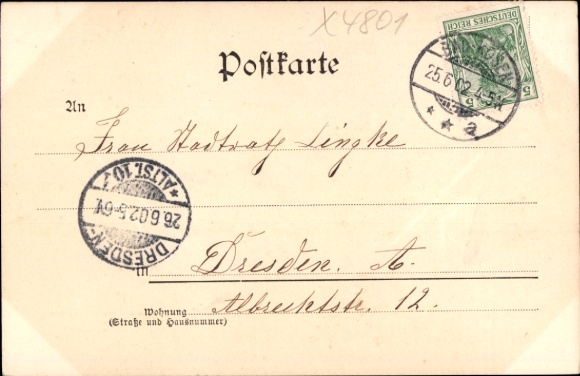 X4801
DEUTSCHES REICH
5 5
Postkarte
25.6.02.4-5N.
* * a
An
Frau Stadtrath Lingke
DRESDEN-
26.6.02.5-6V.
*ALTST.10.
in
Dresden. A.
Albrechtstr. 12.
Wohnung
(Straße und Hausnummer)